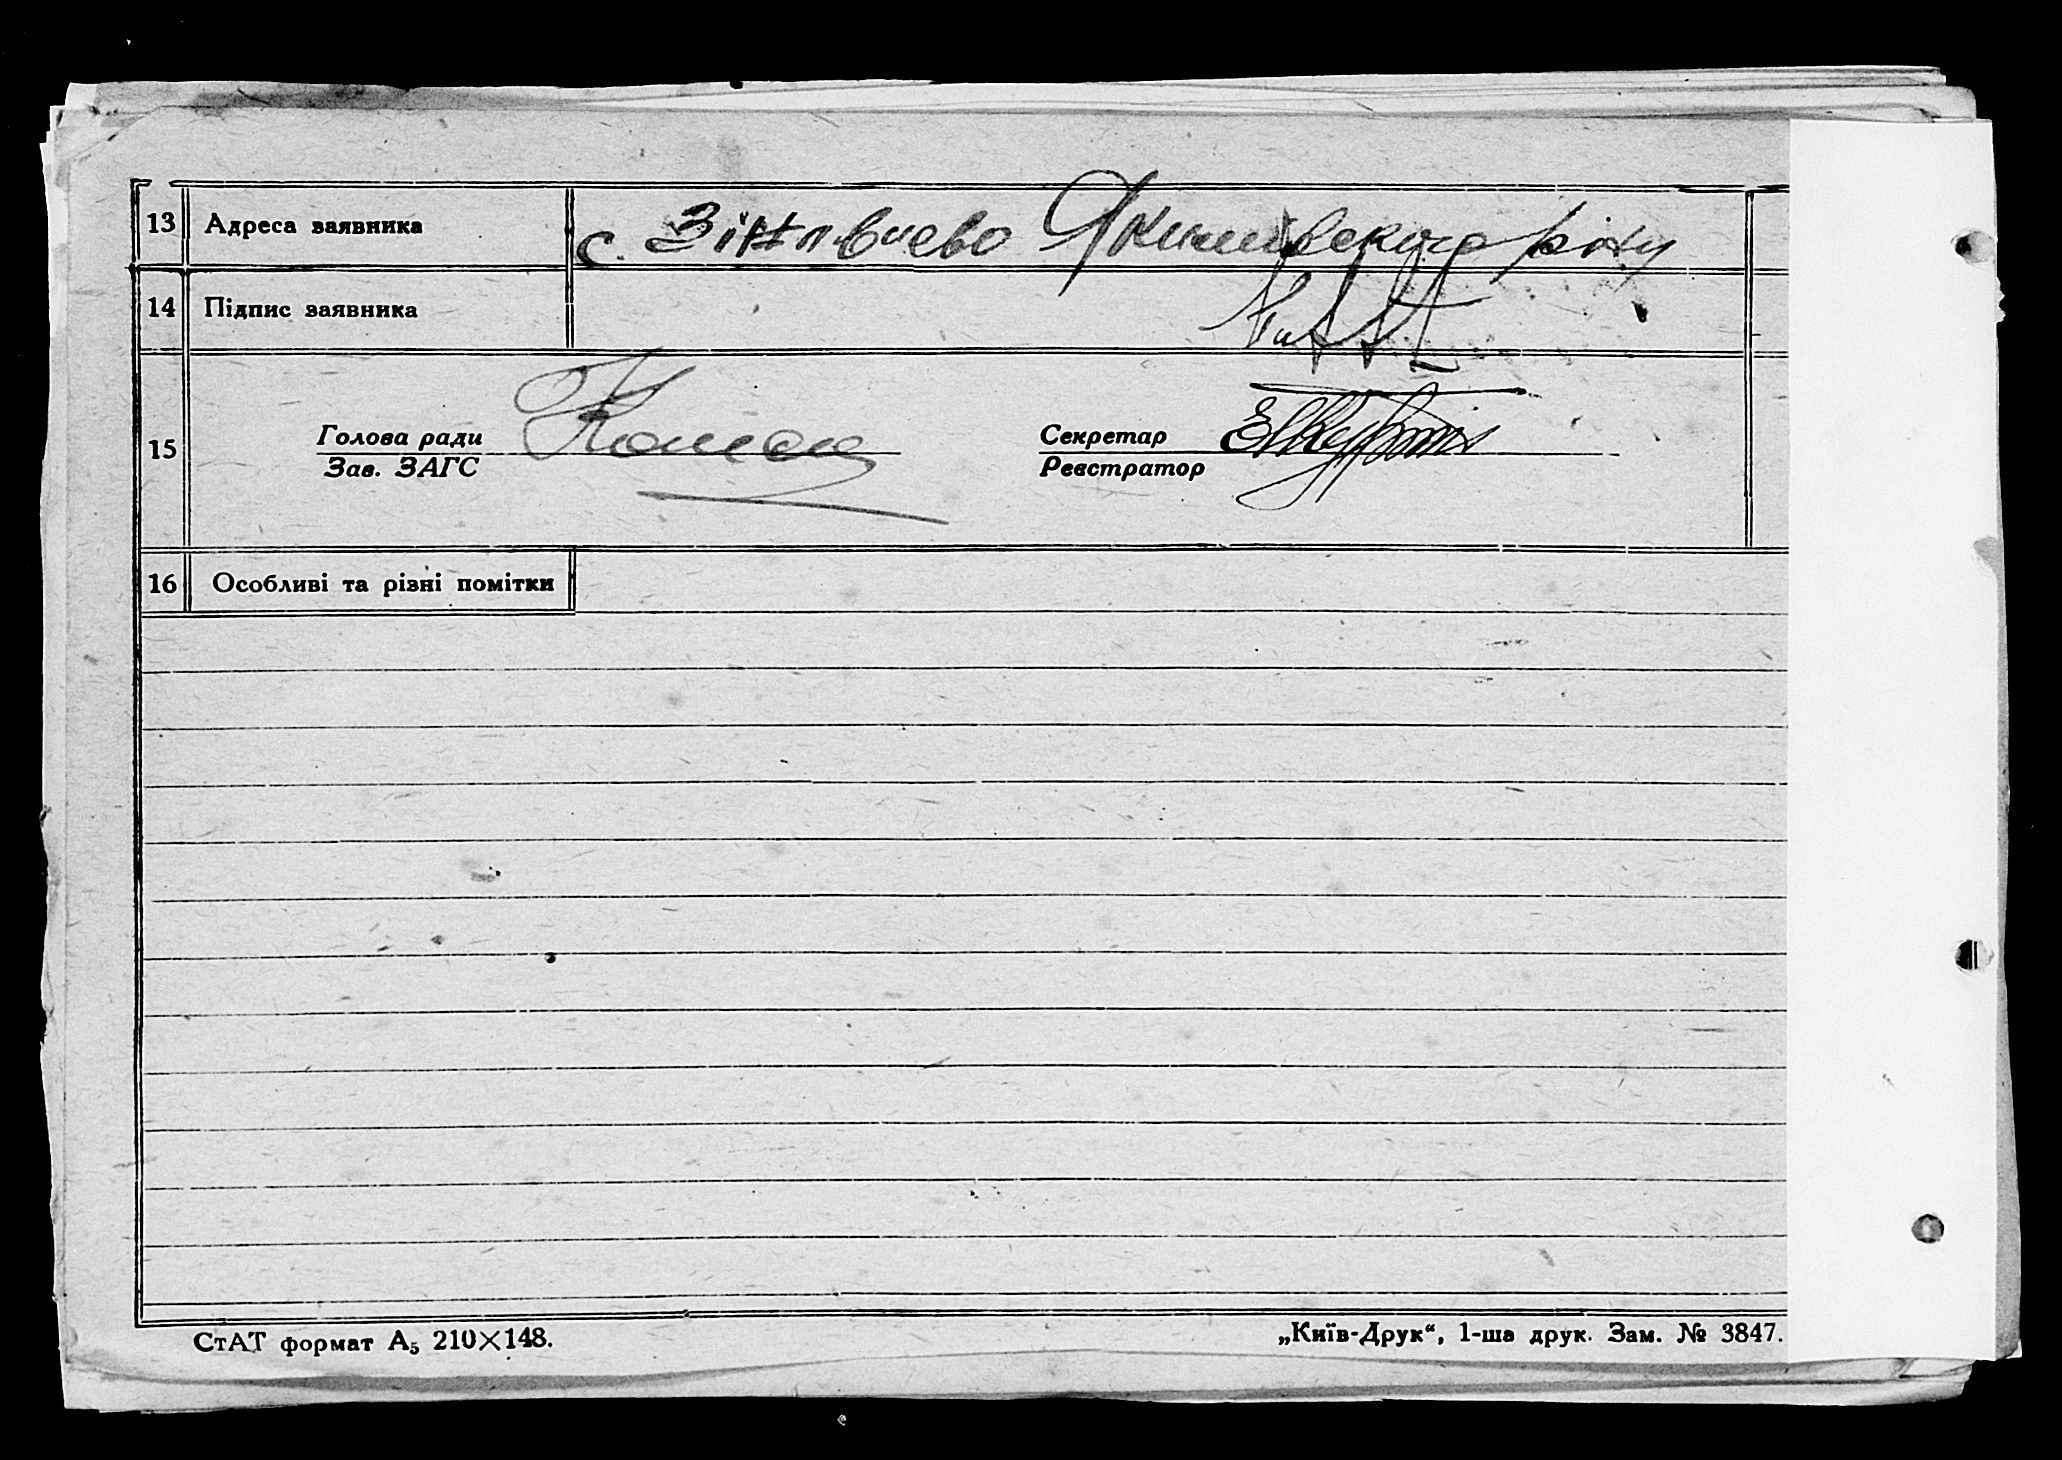 13 Адреса заявника с. Зінпвиево Якимівского р-ну
14 Підпис заявника
15 Голова ради Секретар
Зав. ЗАГС Реєстратор
16 Особливі та різні помітки
СтАТ формат А₅ 210×148. „Київ-Друк“, 1-ша друк. Зам. № 3847.